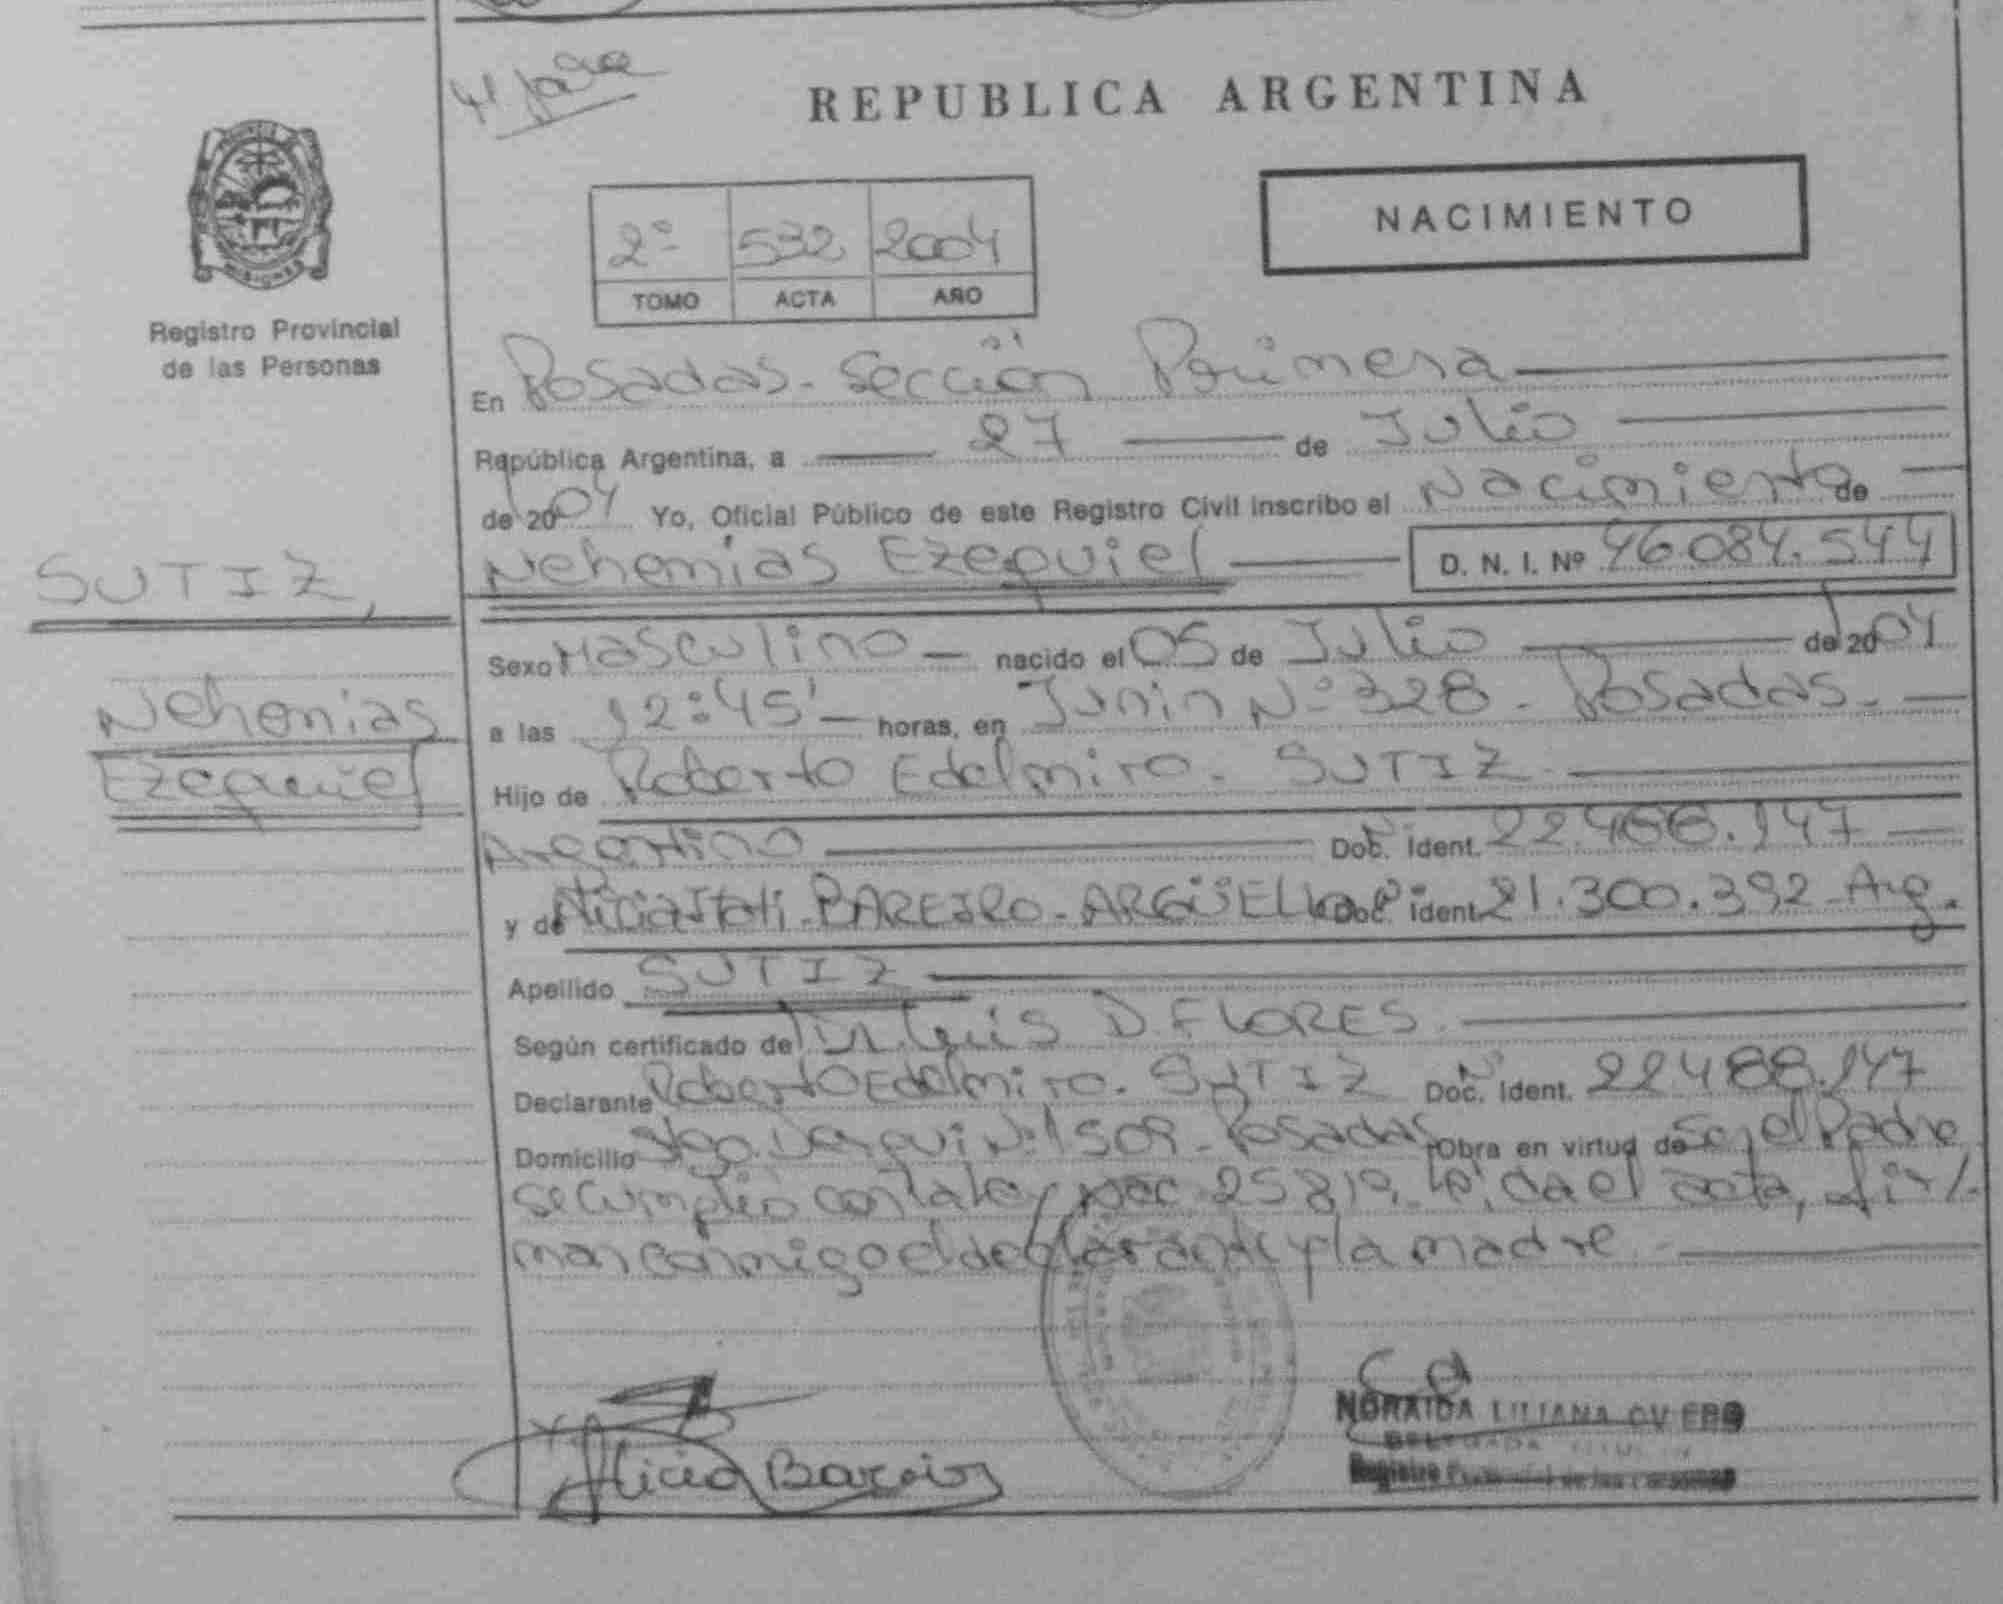 REPUBLICA ARGENTINA
NACIMIENTO
2º 532 2004
TOMO ACTA AÑO
MISIONES
Registro Provincial
de las Personas
En Posadas - Sección Primera
República Argentina, a 27 de Julio
de 2004 Yo, Oficial Público de este Registro Civil inscribo el Nacimiento de
SUTIZ,
Nehemias Ezequiel D. N. I. Nº 46.084.544
Sexo Masculino nacido el 05 de Julio de 2004
Nehemias
a las 12:45' horas, en Junin Nº 328 - Posadas.
Ezequiel
Hijo de Roberto Edelmiro. SUTIZ
Argentino Doc. Ident. 22.488.147
y de Alicia BAREIRO - ARGÜELLO Doc. Ident. 21.300.392 - Arg.
Apellido SUTIZ
Según certificado de Dr. Luis D. FLORES.
Declarante Roberto Edelmiro. SUTIZ Doc. Ident. 22488.147
Domicilio Stgo. Derqui Nº 1509 - Posadas Obra en virtud de Ser el Padre
se cumplio con la ley Nac. 25819. Leida el acta, fir/-
man conmigo el declarante y la madre
Alicia Bareiro
NORAIDA LILIANA
Registro de las Personas